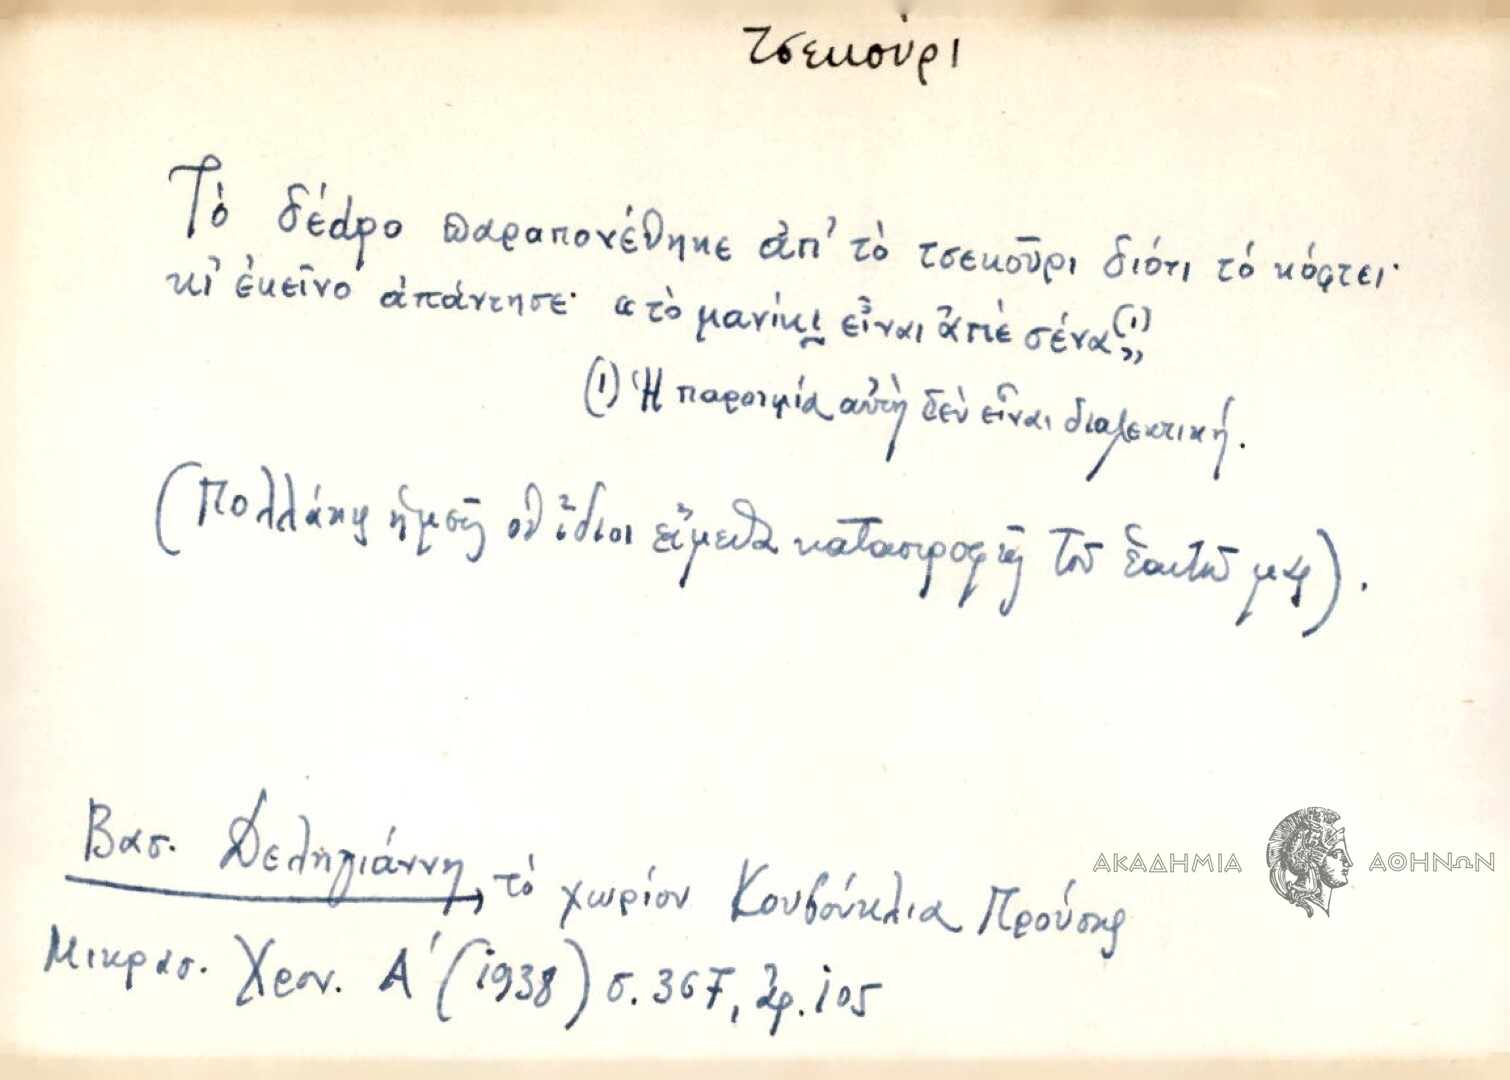 τσεκούρι
Τὸ δέdρο παραπονέθηκε ἀπ' τὸ τσεκοῦρι διότι τὸ κόφτει·
κι' ἐκεῖνο ἀπάντησε· «τὸ μανίκι εἶναι ἀπὲ σένα(1)»
(1) Ἡ παροιμία αὐτὴ δὲν εἶναι διαλεκτική.
(Πολλάκις ἡμεῖς οἱ ἴδιοι εἴμεθα καταστροφεῖς τοῦ ἑαυτοῦ μας).
Βασ. Δεληγιάννη, τὸ χωρίον Κουβούκλια Προύσης
Μικρασ. Χρον. Α' (1938) σ. 367, ἀρ. 105
ΑΚΑΔΗΜΙΑ ΑΘΗΝΩΝ